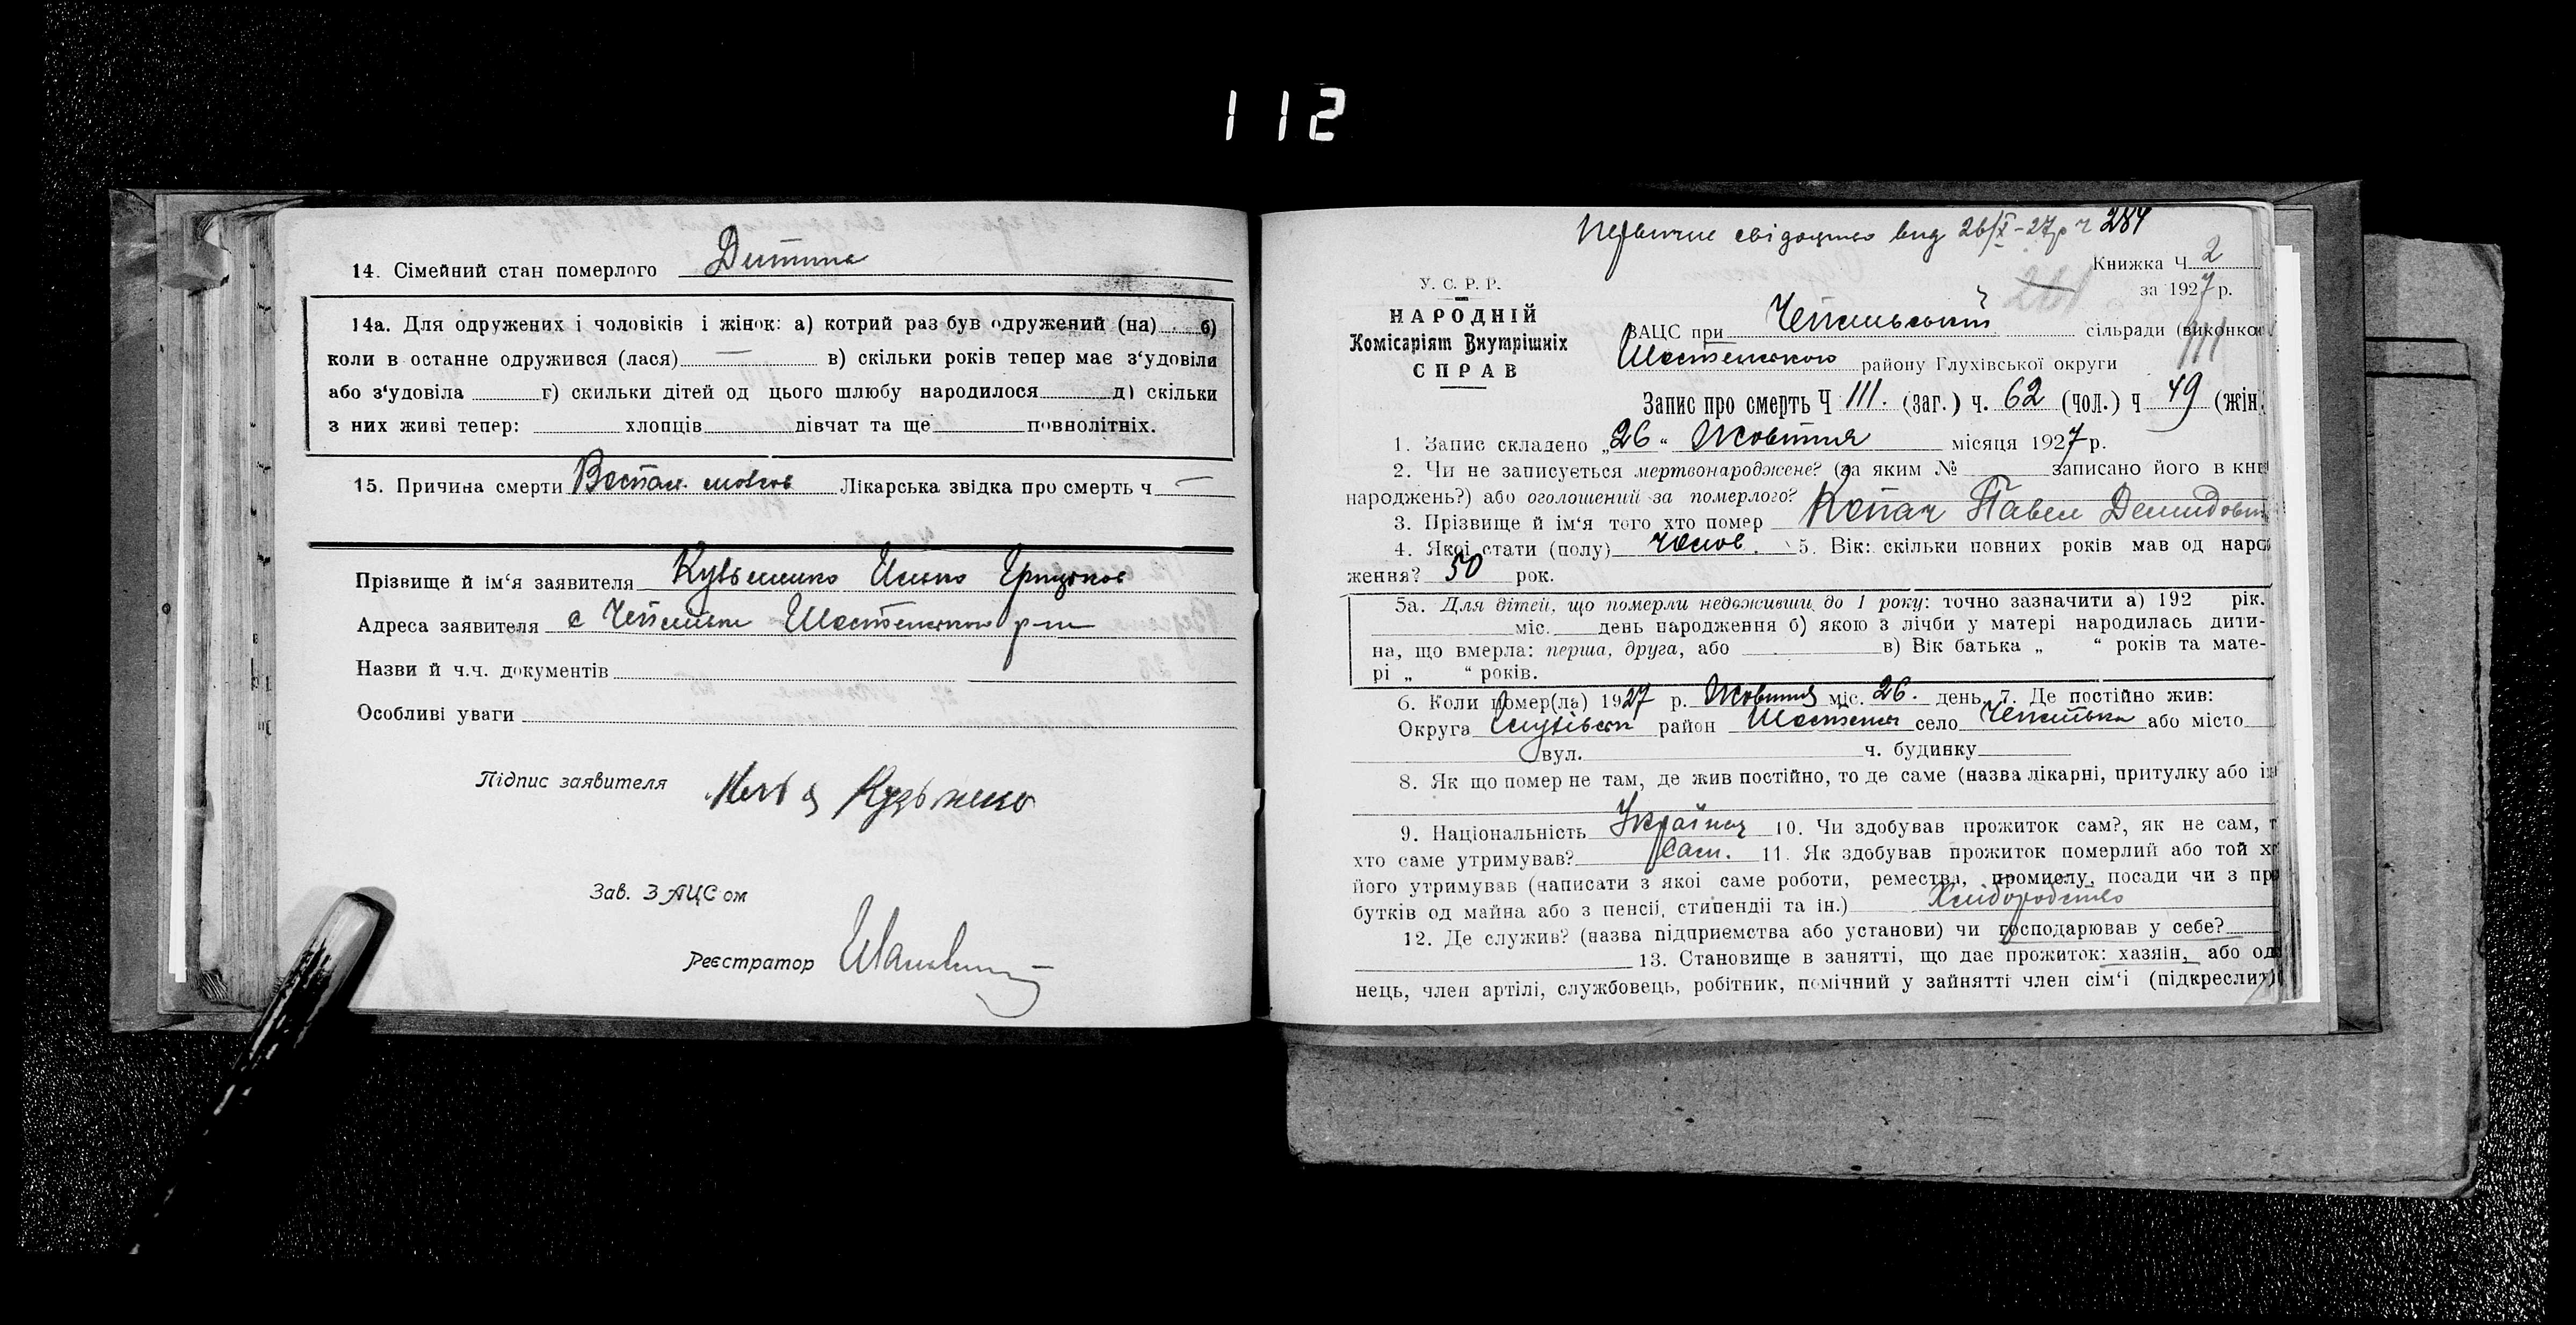 112
14. Сімейний стан померлого Дитина
14а. Для одружених і чоловіків і жінок: а) котрий раз був одружений (на) б)
коли в останне одружився (лася) — в) скільки років тепер має з‘удовіли
або з‘удовіла г) скильки дітей од цього шлюбу народилося д) скільки
з них живі тепер: хлопців дівчат та ще повнолітніх.
15. Причина смерти Воспал. мозгов Лікарська звідка про смерть ч —
Прізвище й ім‘я заявителя Кузьменко Грицьков
Адреса заявителя с Чепліївка Шостенського р-ну
Назви й ч.ч. документів
Особливі уваги
Підпис заявителя Кузьменко
Зав. ЗАЦСом
Реєстратор
Первичне свідоцтво вид 26/X-27р ч 284
Книжка Ч 2
за 1927 р.
261
У. С. Р. Р.
НАРОДНІЙ
Комісаріят Внутрішніх
СПРАВ
ЗАЦС при сільради (виконко
111
Шостенського району Глухівської округи
Запис про смерть Ч 111. (заг.) ч. 62 (чол.) ч 49 (жін.
1. Запис складено „26“ Жовтня місяця 1927 р.
2. Чи не записується мертвонароджене? (за яким № записано його в кни
народжень?) або оголошений за померлого?
3. Прізвище й ім‘я того хто помер Копач Павел Демидович
4. Якої стати (полу) чолов. 5. Вік: скільки повних років мав од наро
ження? 50 рок.
5а. Для дітей, що померли недоживши до 1 року: точно зазначити а) 192 рік.
міс. день народження б) якою з лічби у матері народилась дити-
на, що вмерла: перша, друга, або в) Вік батька „ “ років та мате-
рі „ “ років.
6. Коли помер(ла) 1927 р. Жовтня міс. 26. день. 7. Де постійно жив:
Округа Глухівськ район Шостенськ село Чепліївка або місто
вул. ч. будинку
8. Як що помер не там, де жив постійно, то де саме (назва лікарні, притулку або ін
9. Національність Українец 10. Чи здобував прожиток сам?, як не сам, т
хто саме утримував? Сам. 11. Як здобував прожиток померлий або той хт
його утримував (написати з якої саме роботи, ремества, промислу, посади чи з пр
бутків од майна або з пенсії, стипендії та ін.) Хліборобство
12. Де служив? (назва підприємства або установи) чи господарював у себе?
13. Становище в занятті, що дає прожиток: хазяін, або оди
нець, член артілі, службовець, робітник, помічний у зайнятті член сім‘і (підкреслит)